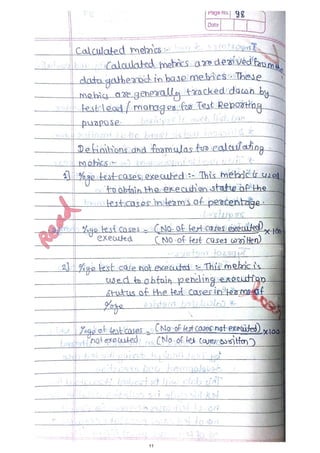 Page No. 98
Date
Calculated metrics -
Calculated metrics are derived from the
data gathered in base metrics. These
metrics are generally tracked down by
test lead / manager for Test Reporting
purpose
Definitions and formulas for calculating
metrics :-
1) %ge test cases executed :- This metric is used
to obtain the execution status of the
test cases in terms of percentage.
Read
%ge test cases executed = (No. of test cases executed) x 100
(No of test cases written)
2) %ge test case not executed :- This metric is
used to obtain pending execution
status of the test cases in terms of
%ge
%ge of test cases not executed = (No of test cases not executed) x 100
(No of test cases written)
11